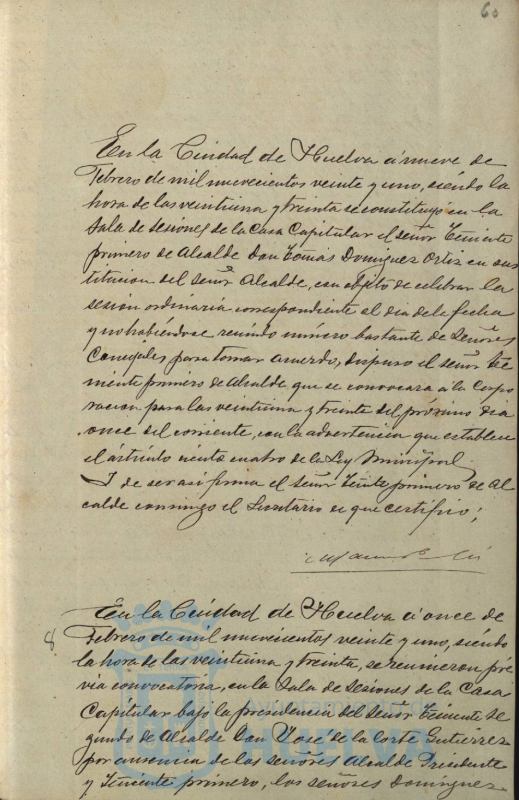 60
En la Ciudad de Huelva á nueve de
Febrero de mil nuevecientos veinte y uno, siendo la
hora de las veintiuna y treinta se constituyó en la
Sala de Sesiones de la Casa Capitular el señor Teniente
primero de Alcalde Don Tomás Dominguez Ortiz en sus
titucion del Señor Alcalde, con objeto de celebrar la
sesión ordinaria correspondiente al dia de la fecha
y no habiéndose reunido número bastante de Señores
Concejales para tomar acuerdo, dispuso el señor Te
niente primero de Alcalde que se convocara a la Corpo
racion para las veintiuna y treinta del próximo dia
once del corriente, con la advertencia que establece
el artículo ciento cuatro de la Ley Municipal.
Y de ser así firma el señor Tente primero de Al
calde conmigo el Secretario de que certifico;
En la Ciudad de Huelva á once de
8
Febrero de mil nuevecientos veinte y uno, siendo
la hora de las veintiuna y treinta, se reunieron pré
via convocatoria, en la Sala de Sesiones de la Casa
Capitular bajo la presidencia del Señor Teniente Se
gundo de Alcalde Don José de la Corte Gutiérrez
por ausencia de los señores Alcalde Presidente
y Teniente primero, los señores Dominguez
Ayuntamiento de
HUELVA